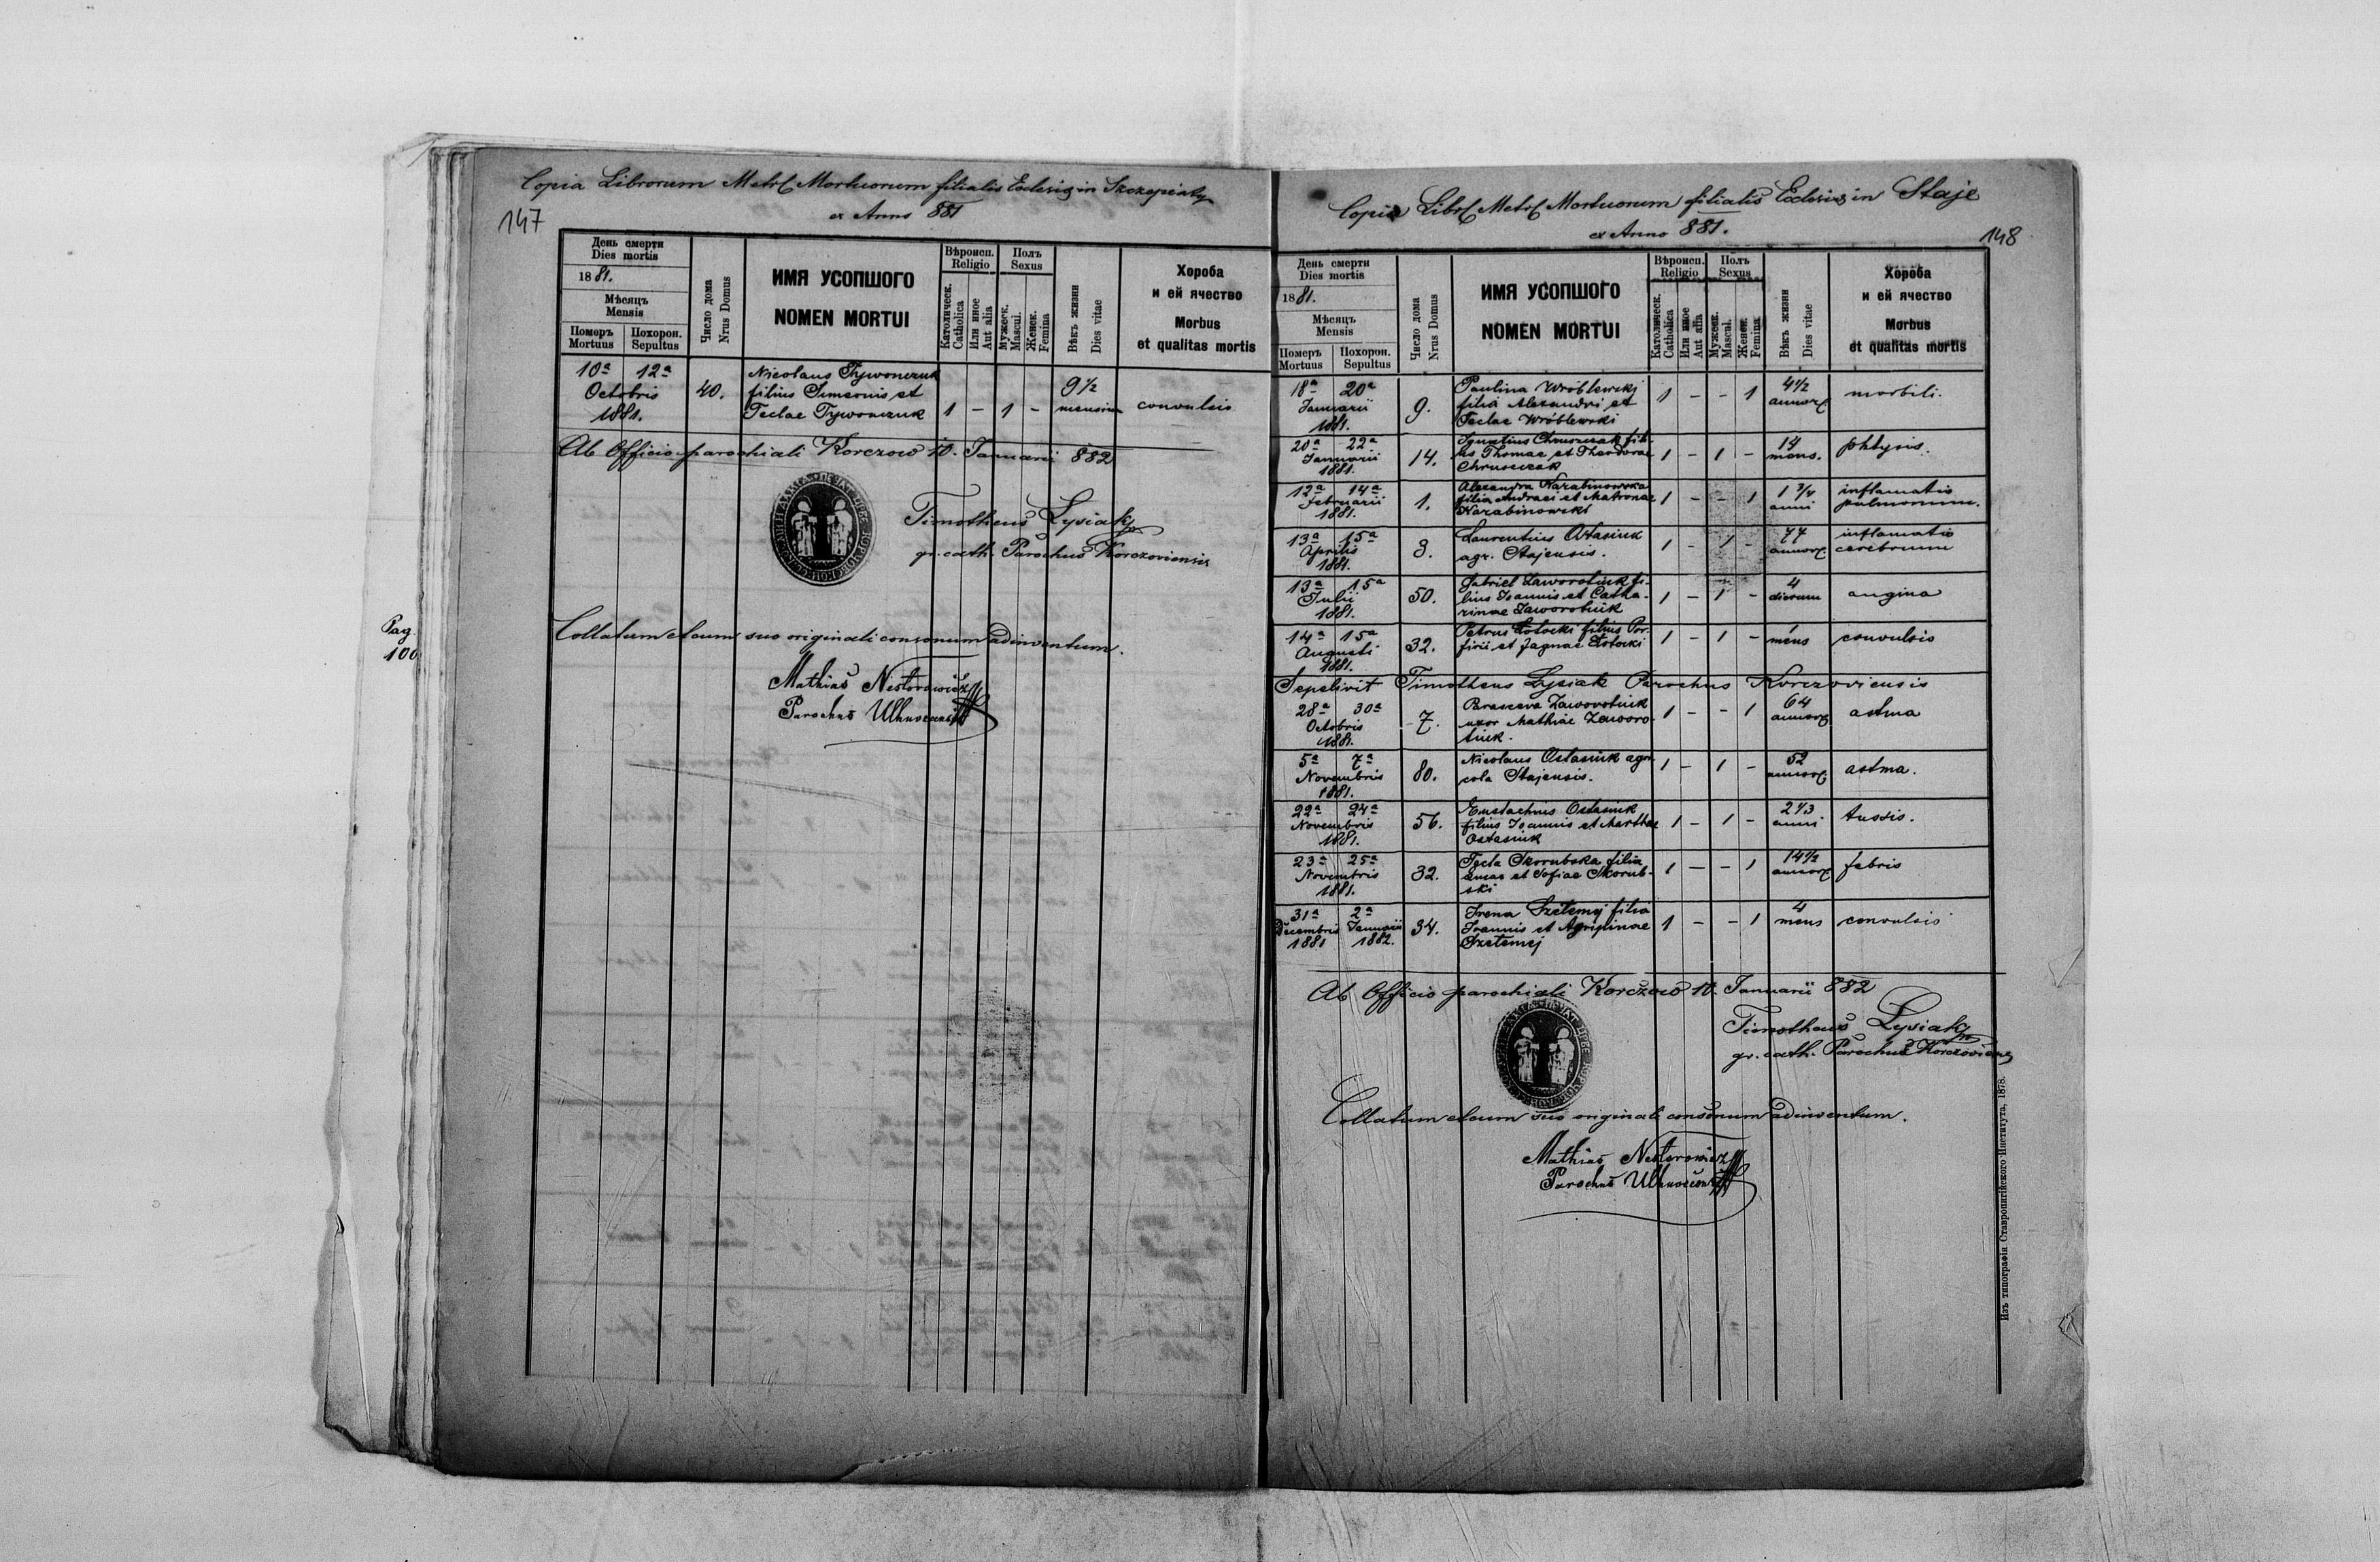 Copia Librorum Metr. Mortuorum filialis Ecclesiae in Szczepiaty
ex Anno 881
147
День смерти
Dies mortis
1881.
Мѣсяцъ
Mensis
Померъ
Mortuus
Похорон.
Sepultus
Число дома
Nrus Domus
ИМЯ УСОПШОГО
NOMEN MORTUI
Вѣроисп.
Religio
Католическ.
Catholica
Или иное
Aut alia
Полъ
Sexus
Мужеск.
Mascul.
Женск.
Femina
Вѣкъ жизни
Dies vitae
Хороба
и ей ячество
Morbus
et qualitas mortis
10a 12a
Octobris
1881.
40.
Nicolaus Tywonczuk
filius Simeonis et
Teclae Tywonczuk
1 - 1 -
9 1/2
mensium
convulsio
Ab Officio parochiali Korczow 10. Januarii 882
Timotheus Lysiak
gr. cath. Parochus Korczoviensis
Pag.
100
Collatum et cum suo originali consonum adinventum.
Mathias Nestorowicz
Parochus
Copia Libr. Metr. Mortuorum filialis Ecclesiae in Staje
ex Anno 881.
148
День смерти
Dies mortis
1881.
Мѣсяцъ
Mensis
Померъ
Mortuus
Похорон.
Sepultus
Число дома
Nrus Domus
ИМЯ УСОПШОГО
NOMEN MORTUI
Вѣроисп.
Religio
Католическ.
Catholica
Или иное
Aut alia
Полъ
Sexus
Мужеск.
Mascul.
Женск.
Femina
Вѣкъ жизни
Dies vitae
Хороба
и ей ячество
Morbus
et qualitas mortis
18a 20a
Januarii
1881.
9.
Paulina Wróblewski
filia Alexandri et
Teclae Wróblewski
1 - - 1
4 1/2
annor.
morbili.
20a 22a
Januarii
1881.
14.
Ignatius Chruszczak fili-
us Thomae et Theodorae
Chruszczak
1 - 1 -
14
mens.
phtysis.
12a 14a
Februarii
1881.
1.
Alexandra Karabinowska
filia Andreei et Matronae
Karabinowski
1 - - 1
1 3/4
anni
inflamatio
pulmonum.
13a 15a
Aprilis
1881.
3.
Laurentius Ostasiuk
agr. Stajensis.
1 - 1 -
77
annor.
inflamatio
cerebrum
13a 15a
Julii
1881.
50.
Gabriel Zaworotiuk fi-
lius Joannis et Catha-
rinae Zaworotiuk
1 - 1 -
4
dierum
angina
14a 15a
Augusti
1881.
32.
Petrus filius Por-
firii et Jagnae
1 - 1 -
1
mens
convulsio
Sepelivit Timotheus Lysiak Parochus Korczoviensis
28a 30a
Octobris
1881.
7.
Parasceva Zaworotiuk
uxor Mathiae Zaworo-
tiuk.
1 - - 1
64
annor.
astma
5a 7a
Novembris
1881.
80.
Nicolaus Ostasiuk agri-
cola Stajensis.
1 - 1 -
52
annor.
astma.
22a 24a
Novembris
1881.
56.
Eustachius Ostasiuk
filius Joannis et Marthae
Ostasiuk
1 - 1 -
2 1/3
anni
tussis.
23a 25a
Novembris
1881.
32.
Tecla Skorubska filia
Lucae et Sofiae Skorub-
ski
1 - - 1
14 1/2
annor.
febris
31a 2a
Decembris Januarii
1881 1882.
34.
Irena Szetemej filia
Joannis et Agripinae
Szetemej
1 - - 1
4
mens
convulsio
Ab Officio parochiali Korczow 10. Januarii 882
Timotheus Lysiak
gr. cath. Parochus Korczoviens
Collatum et cum suo originali consonum adinventum.
Mathias Nestorowicz
Parochus
Изъ типографіи Ставропигійского Института, 1878.